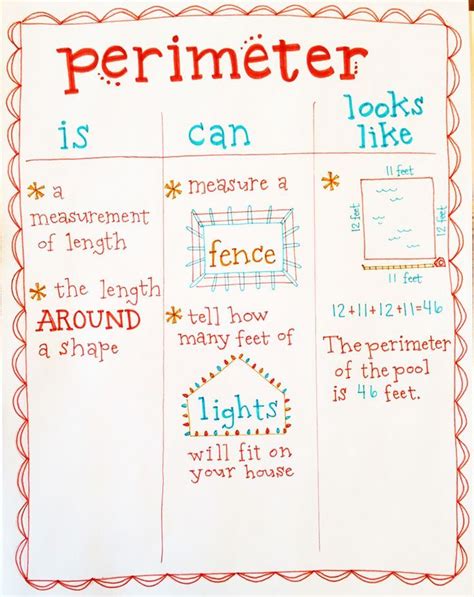 perimeter
is
can
looks
like
* a
measurement
of length
* the length
AROUND
a shape
* measure a
fence
* tell how
many feet of
lights
will fit on
your house
*
11 feet
12 feet
12 feet
12+11+12+11=46
The perimeter
of the pool
is 46 feet.